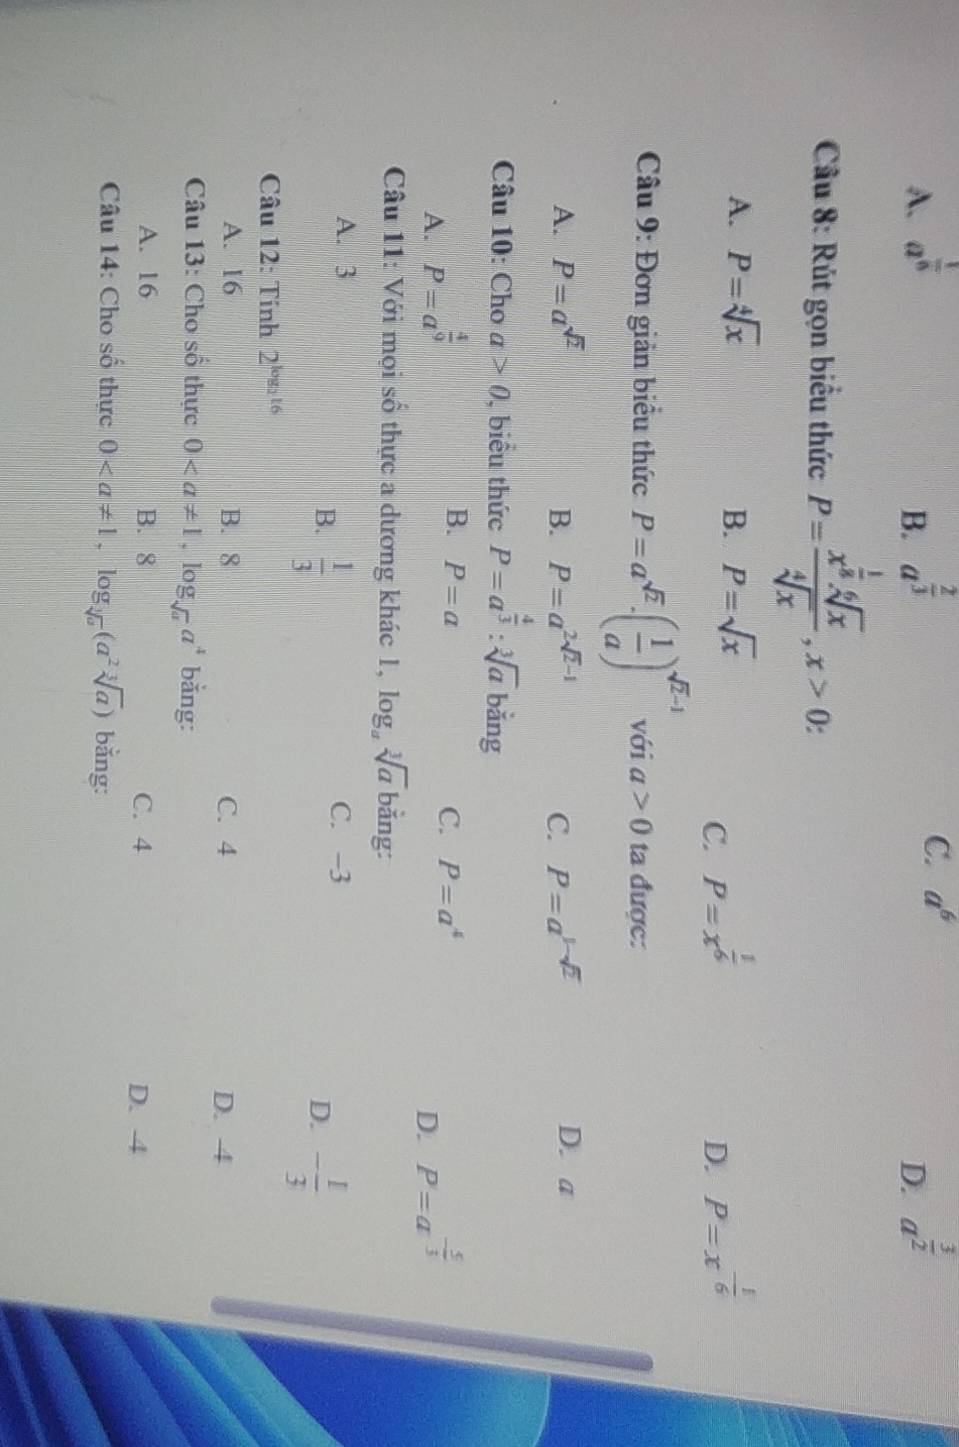 A. $a^{\frac{1}{6}}$ B. $a^{\frac{2}{3}}$ C. $a^{6}$ D. $a^{\frac{3}{2}}$
Câu 8: Rút gọn biểu thức $P=\frac{x^{\frac{1}{8}}.\sqrt[6]{x}}{\sqrt[4]{x}}, x>0$:
A. $P=\sqrt[4]{x}$ B. $P=\sqrt{x}$ C. $P=x^{\frac{1}{6}}$ D. $P=x^{-\frac{1}{6}}$
Câu 9: Đơn giản biểu thức $P=a^{\sqrt{2}}.\left(\frac{1}{a}\right)^{\sqrt{2}-1}$ với $a>0$ ta được:
A. $P=a^{\sqrt{2}}$ B. $P=a^{2\sqrt{2}-1}$ C. $P=a^{1-\sqrt{2}}$ D. $a$
Câu 10: Cho $a>0$, biểu thức $P=a^{\frac{4}{3}}:\sqrt[3]{a}$ bằng
A. $P=a^{\frac{4}{9}}$ B. $P=a$ C. $P=a^{4}$ D. $P=a^{-\frac{5}{3}}$
Câu 11: Với mọi số thực a dương khác 1, $\log_{a}\sqrt[3]{a}$ bằng:
A. 3 B. $\frac{1}{3}$ C. −3 D. $-\frac{1}{3}$
Câu 12: Tính $2^{\log_{2}16}$
A. 16 B. 8 C. 4 D. -4
Câu 13: Cho số thực $0<a\neq 1$, $\log_{\sqrt{a}}a^{4}$ bằng:
A. 16 B. 8 C. 4 D. -4
Câu 14: Cho số thực $0<a\neq 1$, $\log_{\sqrt[3]{a}}(a^{2}.\sqrt[3]{a})$ bằng: